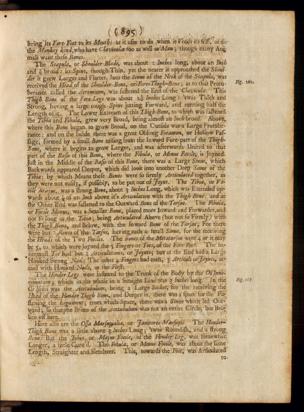 ( 895 )
bring its Fore-Feet to its Mouth: as it uses to do when it Feeds it self, as do
the Monkey kind, who have Claviculæ too as well as Man; though many Ani-
mals want these Bones.
The Scapula, or Shoulder-Blade, was about 2 Inches long, about an Inch
and broad: its Spine, though Thin, yet the nearer it approached the Shoul-
der it grew Larger and Flatter, has the Sinus of the Neck of the Scapula, was
received the Head of the Shoulder-Bone, or Fore-Thigh-Bone; as to that Protu-
berance called the Acromium, was fastened the End of the Clavicula. This
Thigh Bone of the Fore-Leg was about 2½ Inches Long: 'twas Thick and
Strong, having a large rough Spine jutting Forward, and running half the
Length of it. The Lower Extream of this Thigh Bone, to which was fastened
the Tibia and Fibula, grew very Broad, being almost an Inch broad. Above,
where this Bone began to grow Broad, on the Outside was a Large Protube-
rance: and on the inside, there was a great Oblong Foramen, or Hollow Pas-
sage, formed by a small Bone arising from the inward Fore-part of the Thigh-
Bone, where it begins to grow Larger, and was afterwards United to that
part of the Basis of this Bone, where the Fibula, or Minor Focile, is Joynted.
Just in the Middle of the Basis of this Bone, there was a Large Sinus, which
Backwards appeared Deeper, which did look into another Deep Sinus of the
Tibia; by which Means these Bones were so firmly Articulated together, as
they were not easily, if possibly, to be put out of Joynt. The Tibia, or Fo-
cile Majus, was a strong Bone, about 3 Inches Long, which was Extended up-
wards about ½ of an Inch above it's Articulation with the Thigh Bone; and at
the Other End was fastened to the Outward Bone of the Tarsus. The Fibula,
or Focile Minus, was a Smaller Bone, placed more Inward and Forwarder, and
not so long as the Tibia; being Articulated Above (but not so Firmly) with
the Thigh Bone, and Below, with the inward Bone of the Tarsus; for there
were but 2 Bones of the Tarsus, having each a small Sinus, for the receiving
the Heads of the Two Fociles. The Bones of the Metatarsus were 4, or it may
be 5, to which were Joynted the 5 Fingers or Toes, of the Fore-Feet. The Inn
ermost Toe had but 2 Articulations, or Joynts; but at the End had a Large
Hooked Strong Nail. The other 4 Fingers had each 3 Articuli or Joynts, ar-
med with Hooked Nails, as the First.
The Hinder Leggs were fastened to the Trunk of the Body by the Os Inno-
minatum; which in its whole in a streight Line was 3 Inches long. In the
Os Ischii was the Acetabulum, being a Large Cavity, for the receiving the
Head of the Hinder Thigh Bone, and Deeper in, there was a space for the Fa-
stening the ligament; from which space, there was a Sinus which led Out-
ward, so that the Brims of the Acetabulum was not an entire Circle, but Bro-
ken off here.
Here also are the Ossa Marsupialia, or Janitores Marsupii. The Hinder-
Thigh Bone was a little above 3 Inches Long; 'twas Roundish, and a strong
Bone: But the Tibia, or Major Focile, in the Hinder Leg, was somewhat
Longer, a little Curv'd. The Fibula, or Minor Focile, was about the same
Length, Straighter and Slenderer. This, towards the Foot, was Articulated
to